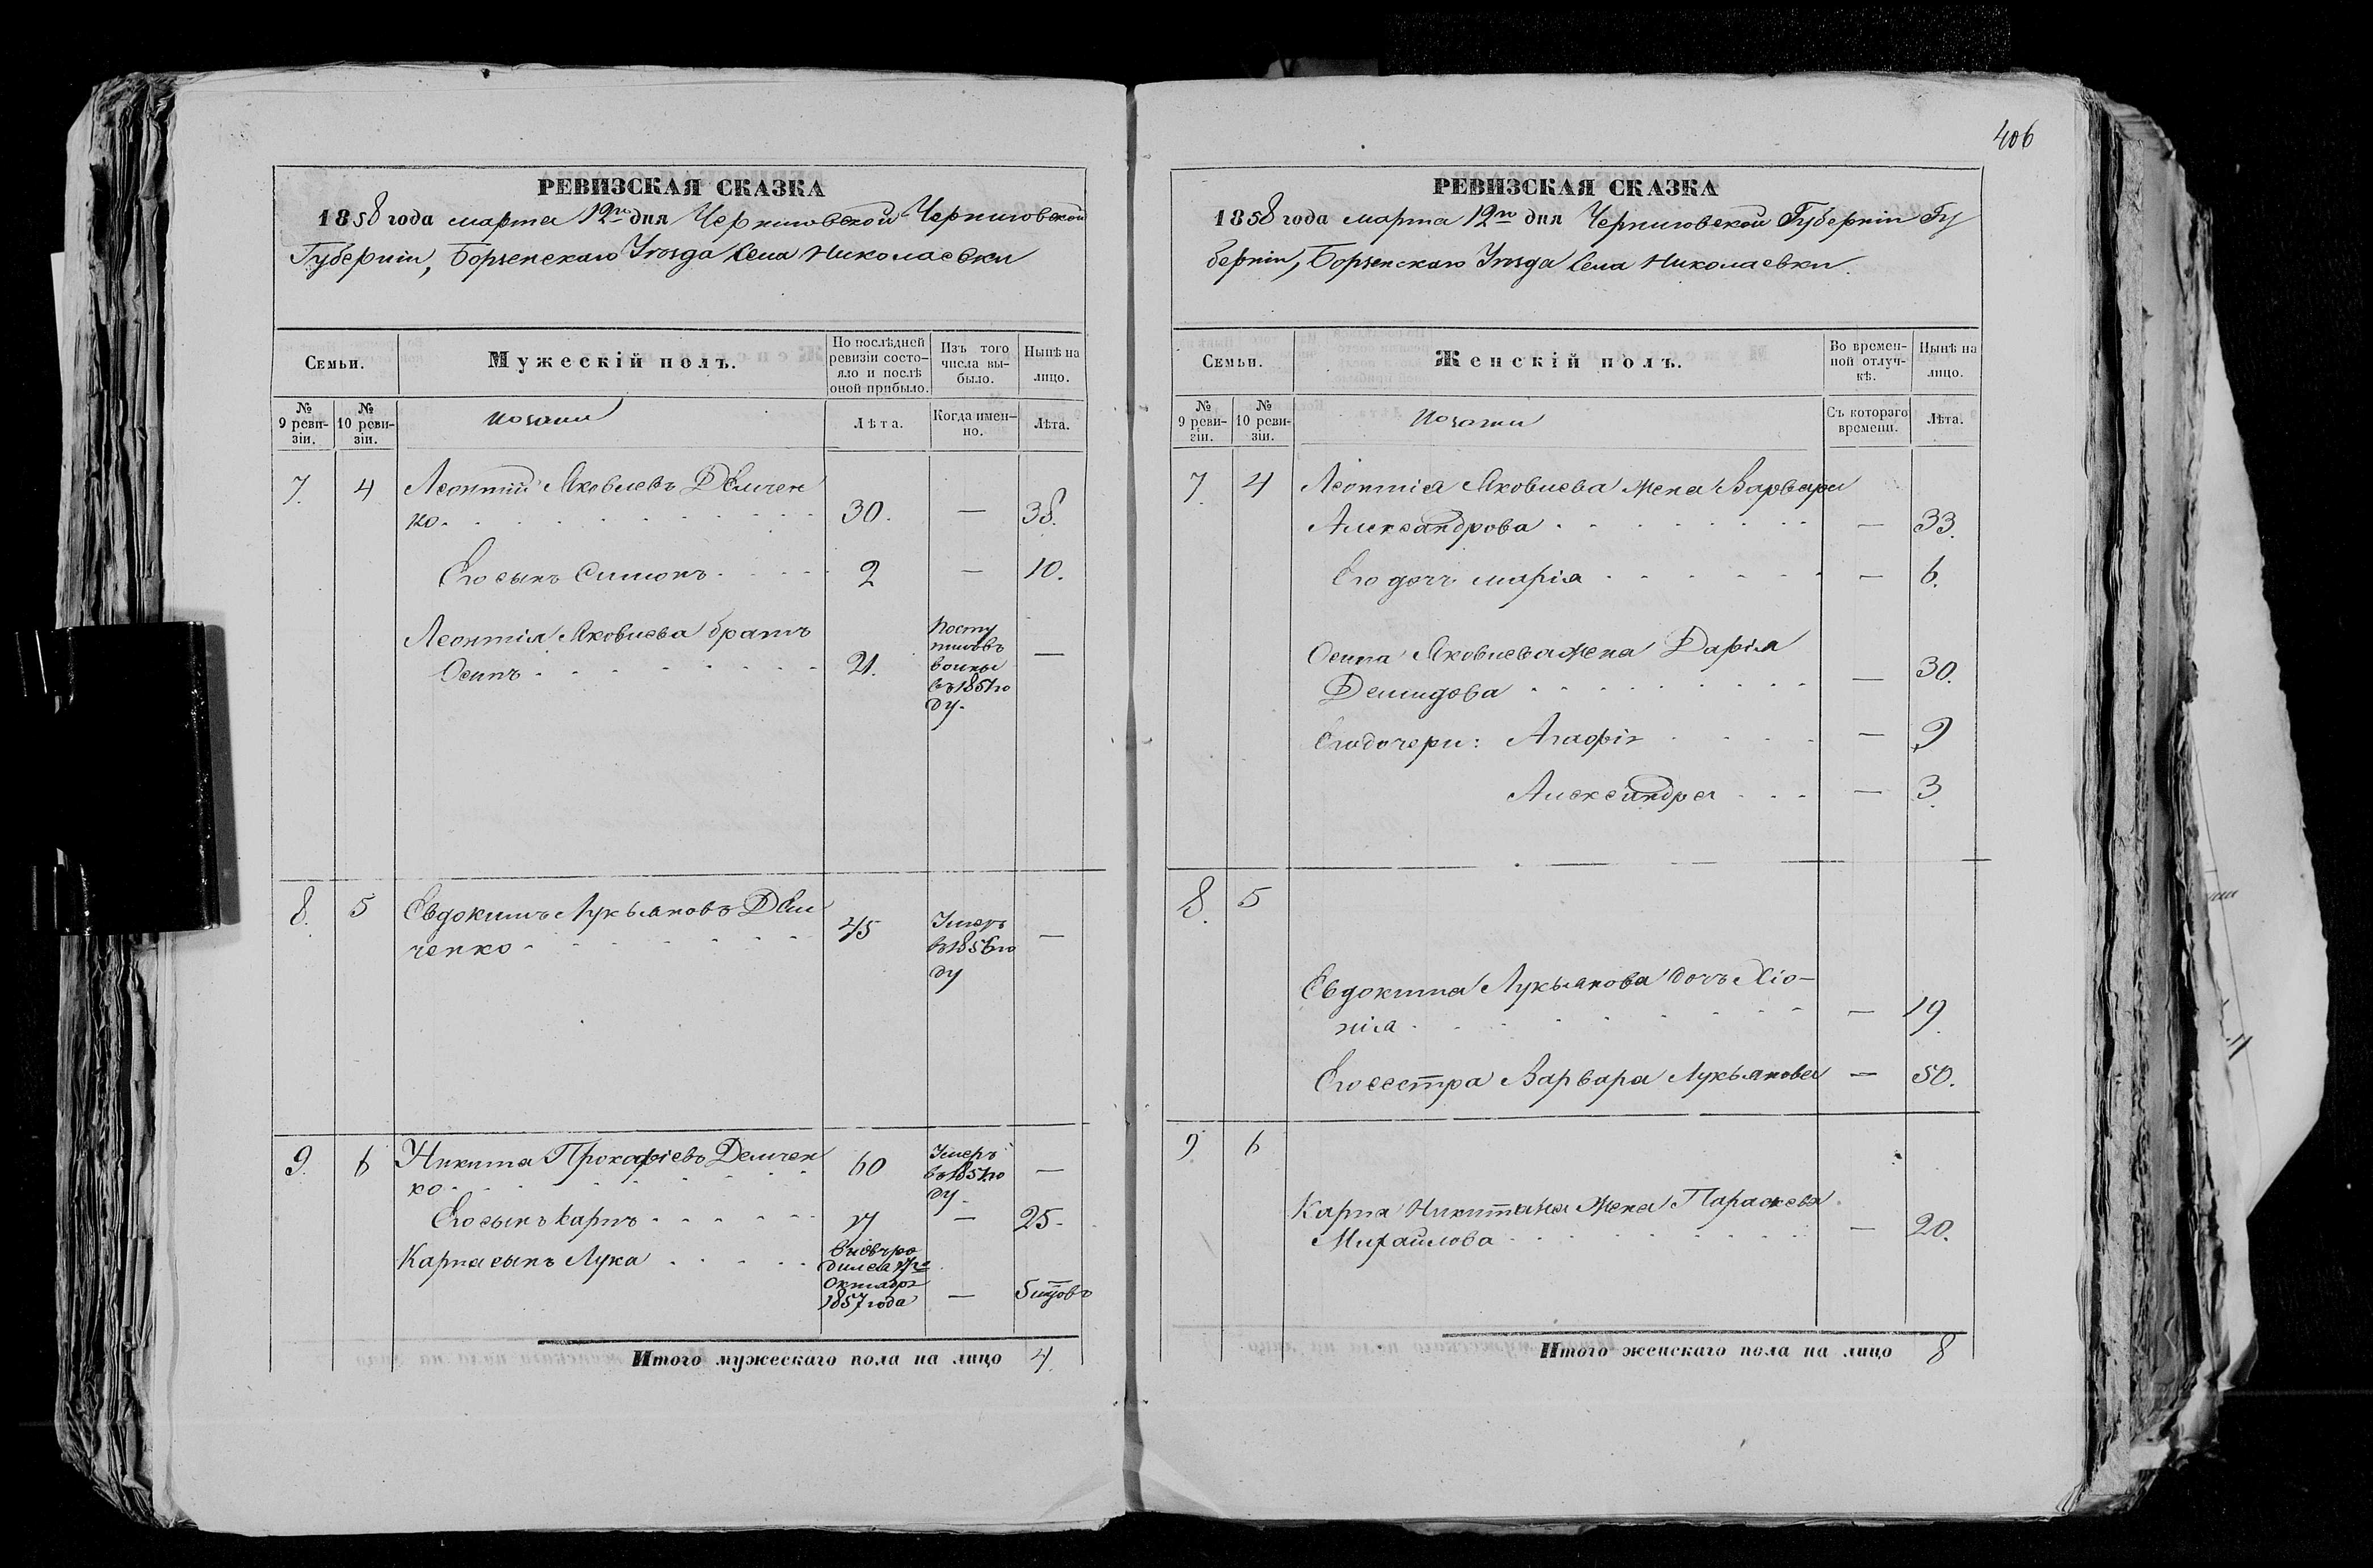 406
РЕВИЗСКАЯ СКАЗКА
1858 года марта 12го дня Черниговской Черниговской
Губерніи, Борзенскаго Уѣзда Села Николаевки
Семьи.
Мужескій полъ.
По послѣдней ревизіи состояло и послѣ оной прибыло.
Изъ того числа выбыло.
Нынѣ на лицо.
№ 9 ревизіи.
№ 10 ревизіи.
Козаки
Лѣта.
Когда именно.
Лѣта.
7. 4 Леонтій Яковлевъ Демчен
ко. 30. — 38.
Его сынъ Симонъ 2 — 10.
Леонтія Яковлева братъ
Осипъ 21. Посту
пилъ въ
воины
въ 1851 го
ду. —
8. 5 Евдокимъ Лукьяновъ Дем
ченко 45 Умеръ
въ 1856 го
ду —
9. 6 Никита Прокофіевъ Демчен
ко 60 Умеръ
въ 1851 го
ду. —
Его сынъ Карпъ 17 — 25.
Карпа сынъ Лука вновь ро
дился 17го
Октября
1857 года — 5 мцовъ
Итого мужескаго пола на лицо 4.
РЕВИЗСКАЯ СКАЗКА
1858 года марта 12го дня Черниговской Губерніи Гу
берніи, Борзенскаго Уѣзда Села Николаевки.
Семьи.
Женскій полъ.
Во временной отлучкѣ.
Нынѣ на лицо.
№ 9 ревизіи.
№ 10 ревизіи.
Козачки
Съ котораго времени.
Лѣта.
7 4 Леонтія Яковлева жена Варвара
Александрова — 33.
Его дочь Марія — 6.
Осипа Яковлева жена Дарія
Демидова — 30.
Его дочери: Агафія — 9
Александра — 3.
8. 5
Евдокима Лукьянова дочь Хіо-
нія — 19.
Его сестра Варвара Лукьянова — 50.
9 6
Карпа Никитина жена Параскева
Михайлова — 20.
Итого женскаго пола на лицо 8